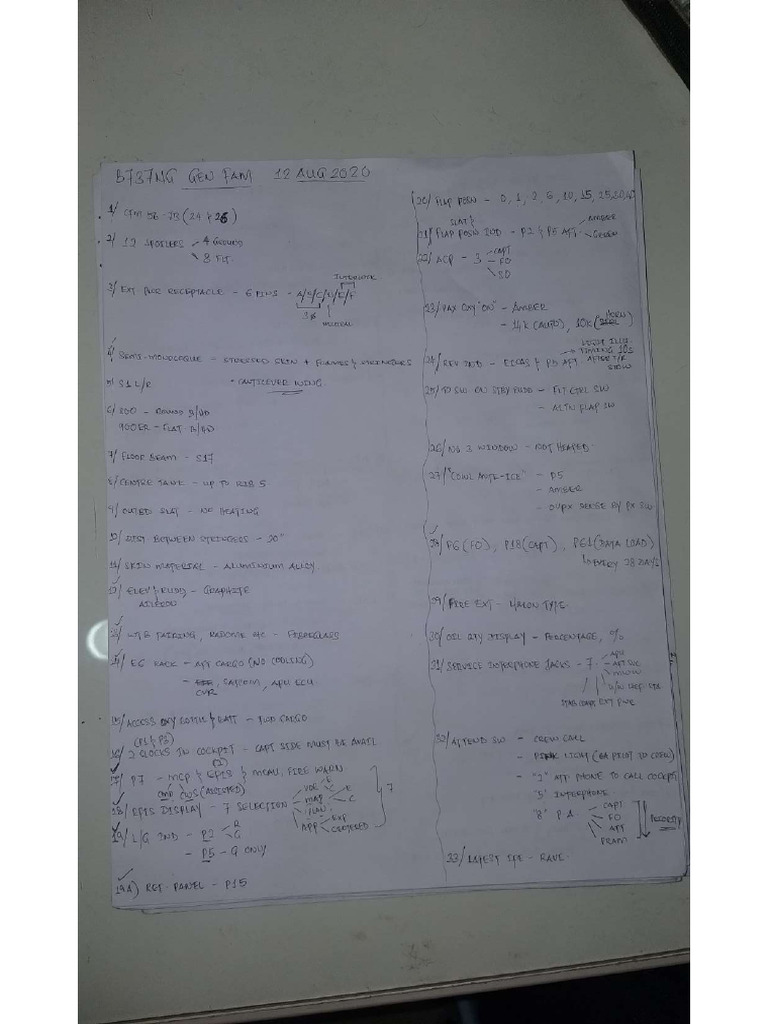 B737NG GEN FAM 12 AUG 2020
1/ CFM 56-7B (24 & 26)
2/ 12 SPOILERS 4 GROUND
8 FLT
3/ EXT PWR RECEPTACLE - 6 PINS - A/B/C/N/E/F
INTERLOCK
3ϕ
NEUTRAL
4/ SEMI-MONOCOQUE - STRESSED SKIN + FRAMES & STRINGERS
• CANTILEVER WING
5/ S1 L/R
6/ 800 - ROUND B/HD
900ER - FLAT B/HD
7/ FLOOR BEAM - S17
8/ CENTRE TANK - UP TO RIB 5
9/ OUTBD SLAT - NO HEATING
10/ DIST BETWEEN STRINGERS - 20"
11/ SKIN MATERIAL - ALUMINIUM ALLOY.
12/ ELEV & RUDD - GRAPHITE
AILERON
13/ W-T-B FAIRING, RADOME etc - FIBERGLASS
14/ E6 RACK - AFT CARGO (NO COOLING)
- SATCOM, APU ECU
CVR
15/ ACCESS OXY BOTTLE & BATT - FWD CARGO
(P1 & P3)
16/ 2 CLOCKS IN COCKPIT - CAPT SIDE MUST BE AVAIL
(P1)
17/ P7 - MCP & EFIS & MCAU, FIRE WARN
CMD CWS (ASSISTED)
18/ EFIS DISPLAY - 7 SELECTION
VOR E
C
MAP E
C
PLAN
APP EXP
CENTERED
7
19/ L/G IND - P2 R
G
- P5 - G ONLY
19A) REF. PANEL - P15
20/ FLAP POSN - 0, 1, 2, 5, 10, 15, 25, 30, 40
SLAT &
21/ FLAP POSN IND - P2 & P5 AFT AMBER
GREEN
22/ ACP - 3 CAPT
FO
SO
23/ PAX OXY "ON" - AMBER
- 14K (AUTO), 10K (HORN)
24/ REV IND - EICAS & P5 AFT
LIGHT ILLU.
TIMING 10s
AFTER T/R
STOW
25/ SW ON STBY RUDD - FLT CTRL SW
- ALTN FLAP SW
26/ NO 3 WINDOW - NOT HEATED
27/ "COWL ANTI-ICE" - P5
- AMBER
- OVPX SENSE BY PX SW.
28/ P6 (FO), P18 (CAPT), P61 (DATA LOAD)
EVERY 28 DAYS
29/ FIRE EXT - HALON TYPE
30/ OIL QTY DISPLAY - PERCENTAGE, %
31/ SERVICE INTERPHONE JACKS - 7
APU
AFT SVC
MWW
EXT PWR
32/ ATTEND SW - CREW CALL
- PINK LIGHT (OR PILOT TO CREW)
- "2" ATT PHONE TO CALL COCKPIT
"5" INTERPHONE
"8" P.A CAPT
FO
ATT
PRAM
PRIORITY